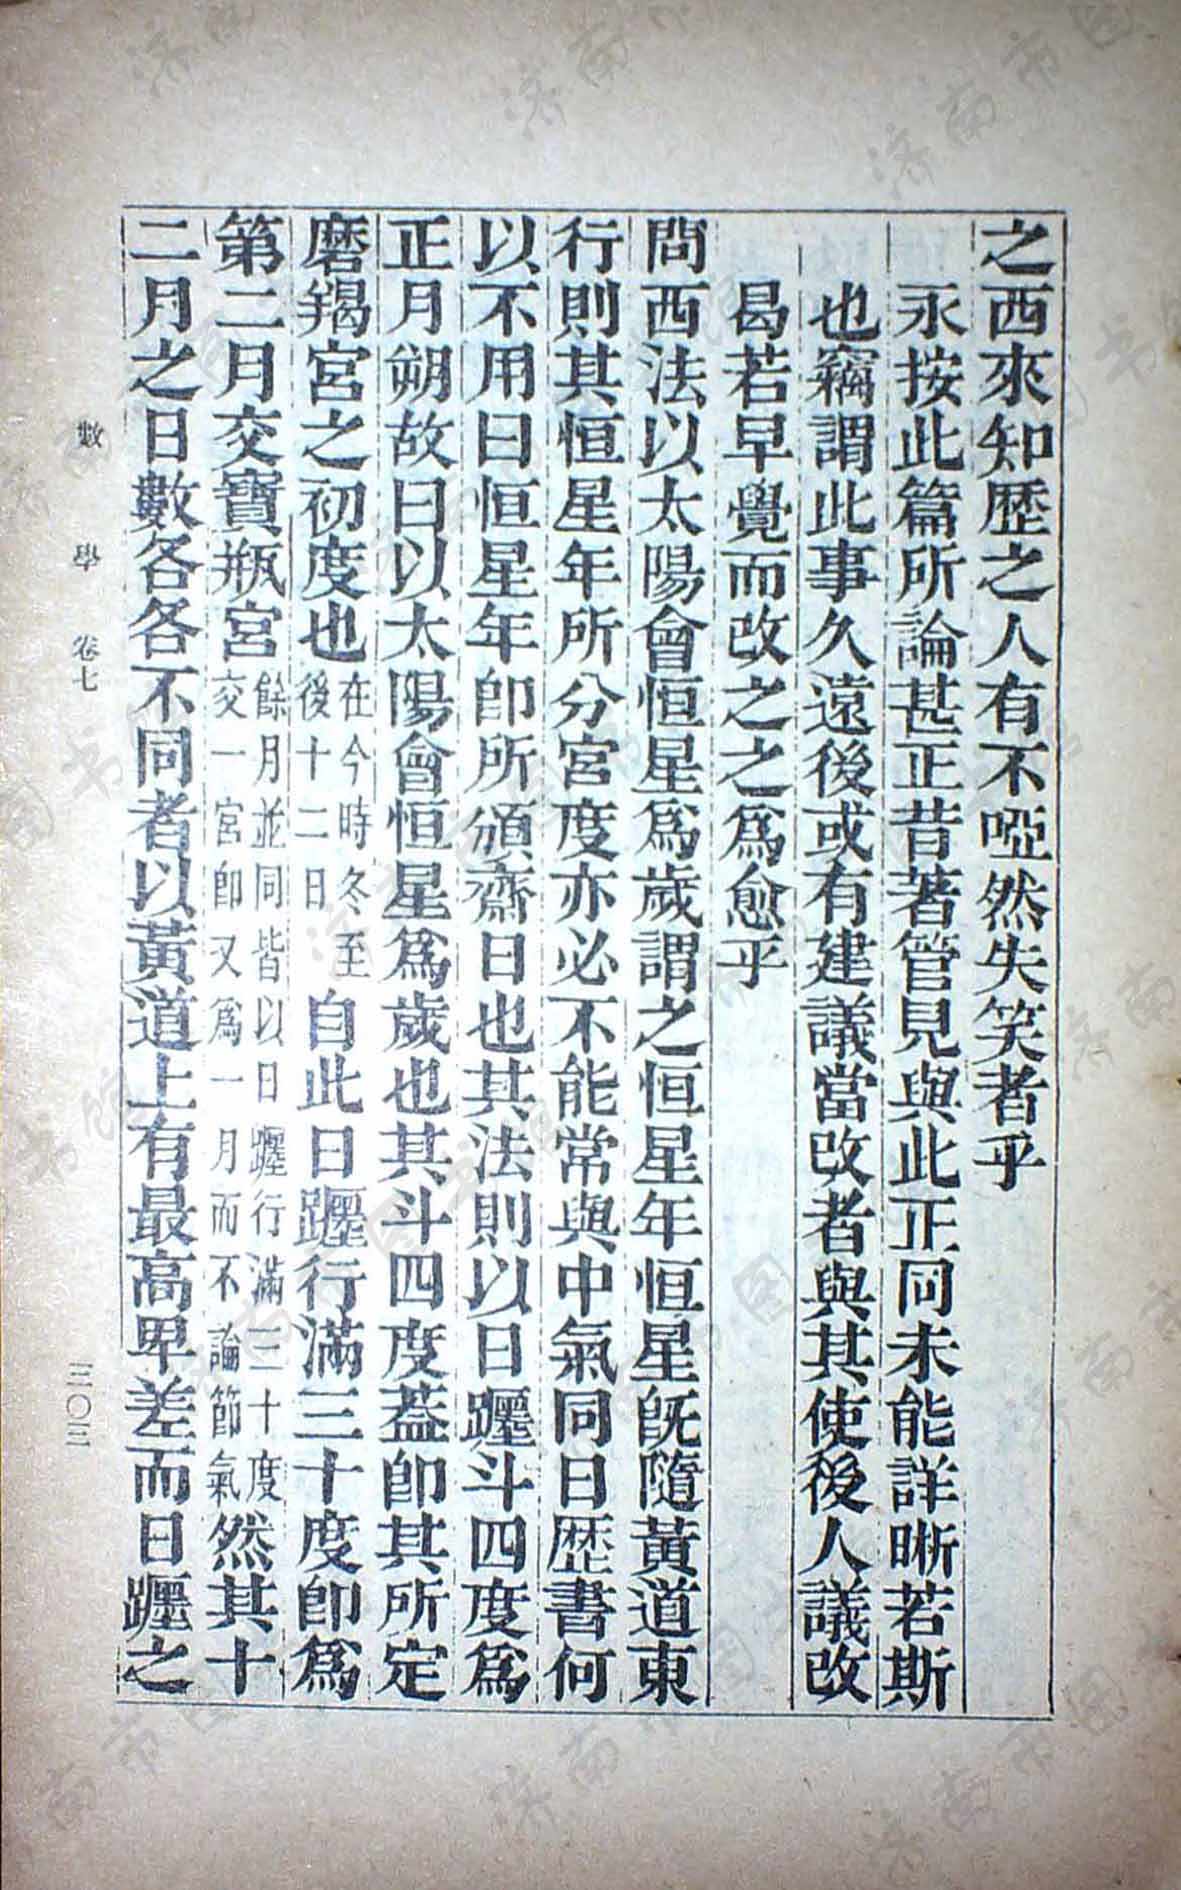 之西來知歷之人有不啞然失笑者乎
永按此篇所論甚正昔著管見與此正同未能詳晰若斯
也竊謂此事久遠後或有建議當改者與其使後人議改
曷若早覺而改之之爲愈乎
問西法以太陽會恒星爲歲謂之恒星年恒星旣隨黃道東
行則其恒星年所分宮度亦必不能常與中氣同日歷書何
以不用曰恒星年卽所頒齋日也其法則以日躔斗四度爲
正月朔故曰以太陽會恒星爲歲也其斗四度葢卽其所定
磨羯宮之初度也在今時冬至後十二日自此日躔行滿三十度卽爲
第二月交寶瓶宮餘月並同皆以日躔行滿三十度交一宮卽又爲一月而不論節氣然其十
二月之日數各各不同者以黃道上有最高卑差而日躔之
數學 卷七 三〇三
济南市图书馆